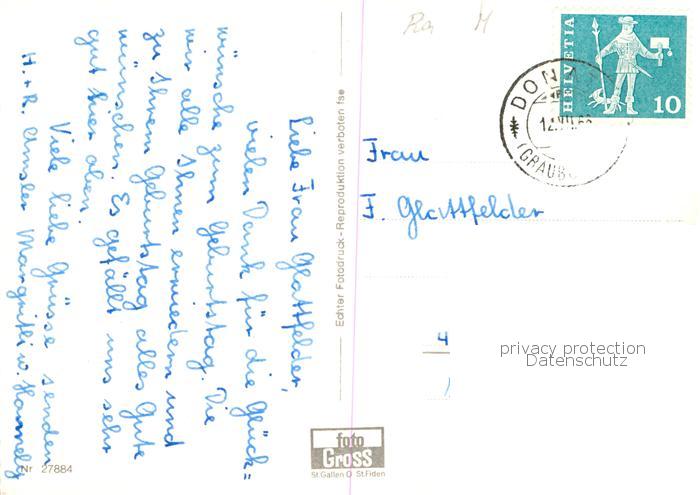 Liebe Frau Glattfelder,
vielen Dank für die Glück=
wünsche zum Geburtstag. Die
wir alle Ihnen erwiedern und
zu Ihrem Geburtstag alles Gute
wünschen. Es gefällt uns sehr
gut hier oben.
Viele liebe Grüsse senden
H. + R. Amsler Margritli u. Hannely
Nr 27884
Echter Fotodruck - Reproduktion verboten fse
foto
Gross
St. Gallen O St. Fiden
HELVETIA
10
DON
12.VII.66
(GRAUB
Frau
F. Glattfelder
4
privacy protection
Datenschutz